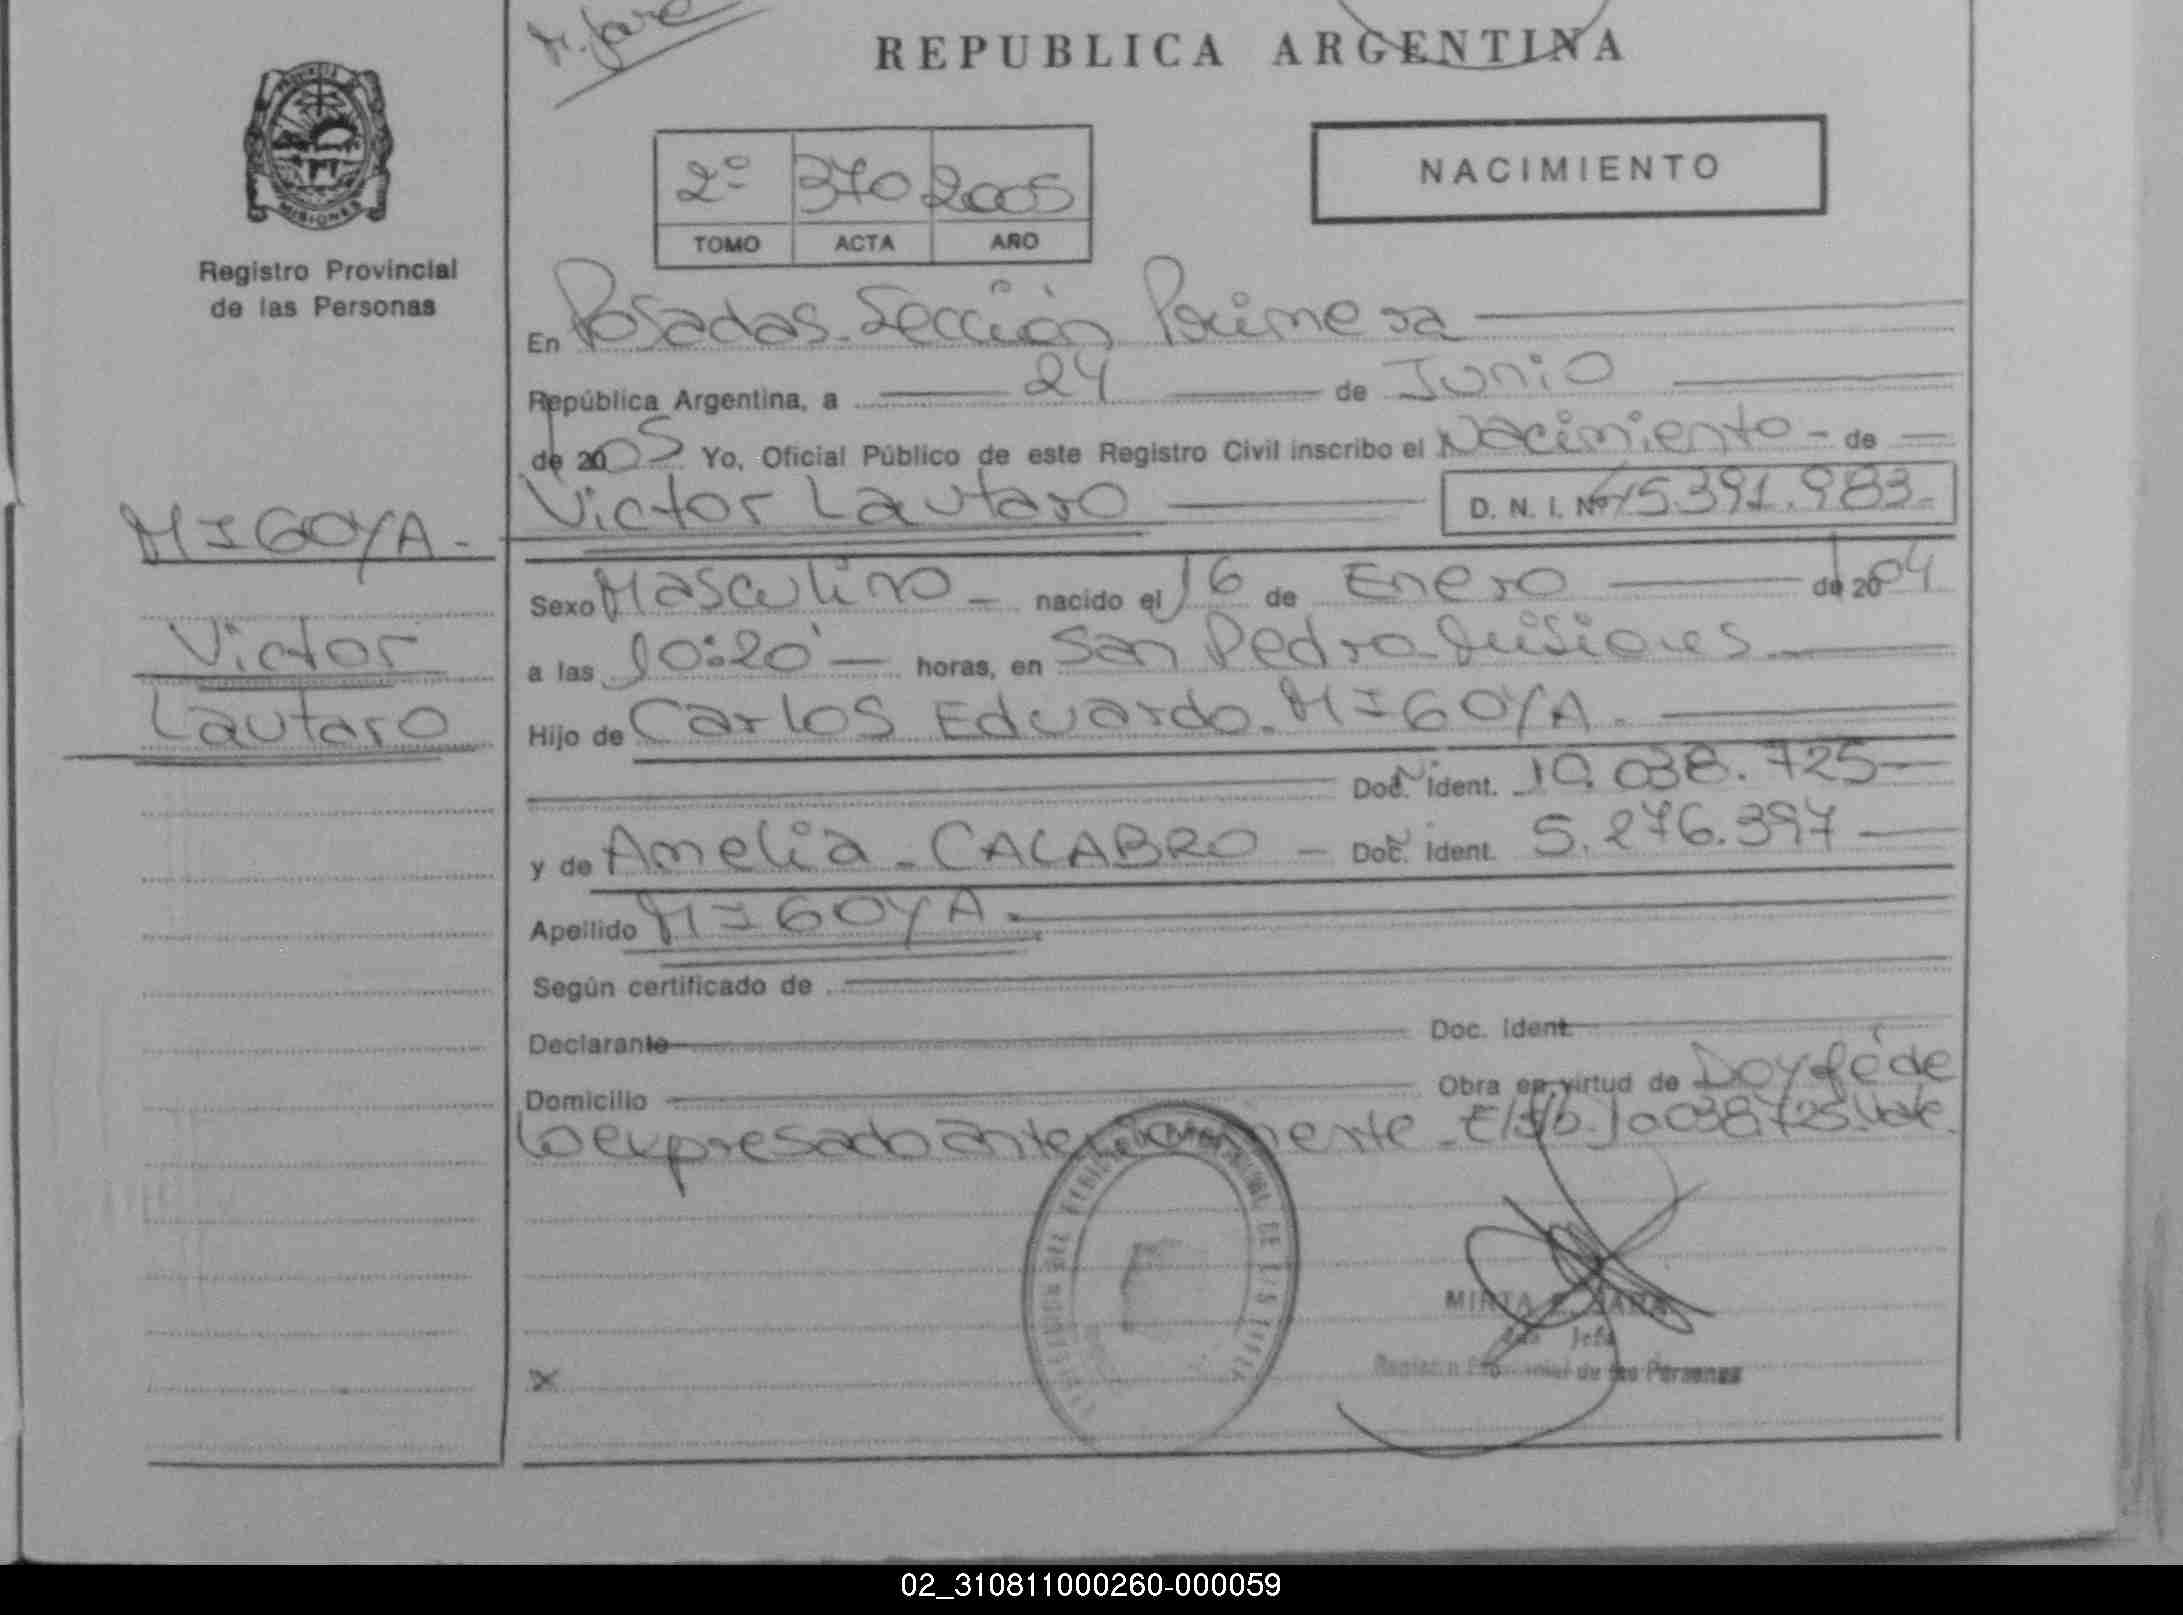 REPUBLICA ARGENTINA
MISIONES
Registro Provincial
de las Personas
2º 370 2005
TOMO ACTA AÑO
NACIMIENTO
En Posadas. Sección Primera
República Argentina, a 24 de Junio
de 2005 Yo, Oficial Público de este Registro Civil inscribo el Nacimiento - de
MIGOYA.
Victor Lautaro
Victor Lautaro D. N. I. Nº 45.391.983.
Sexo Masculino nacido el 16 de Enero de 2004
a las 10:20' horas, en San Pedro. Misiones
Hijo de Carlos Eduardo. MIGOYA.
Doc. ident. 10.038.725
y de Amelia. CALABRO - Doc. ident. 5.276.397
Apellido MIGOYA.
Según certificado de
Declarante Doc. ident.
Domicilio Obra en virtud de Doy fé de
lo expresado anteriormente. E/s/b. 10038725. Vale.
MIRTA JARA
Jefe
Registro Provincial de las Personas
02_310811000260-000059